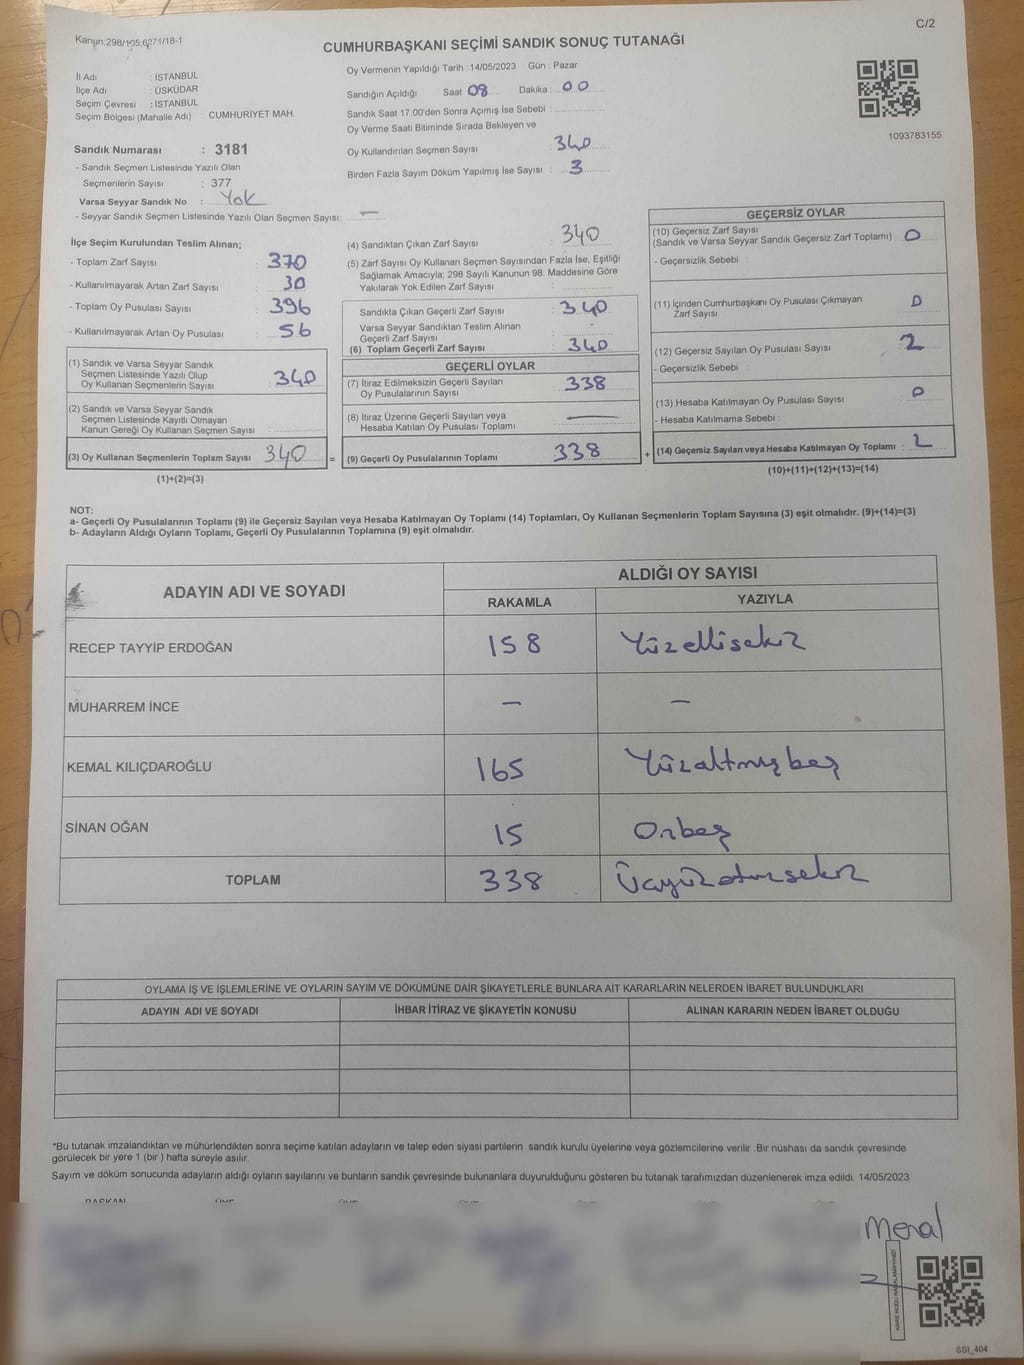 C/2
Kanun:298/105,6271/18-1
CUMHURBAŞKANI SEÇİMİ SANDIK SONUÇ TUTANAĞI
İl Adı : İSTANBUL
İlçe Adı : ÜSKÜDAR
Seçim Çevresi : İSTANBUL
Seçim Bölgesi (Mahalle Adı) : CUMHURİYET MAH.
Sandık Numarası : 3181
- Sandık Seçmen Listesinde Yazılı Olan
Seçmenlerin Sayısı : 377
Varsa Seyyar Sandık No : Yok
- Seyyar Sandık Seçmen Listesinde Yazılı Olan Seçmen Sayısı: —
Oy Vermenin Yapıldığı Tarih : 14/05/2023 Gün : Pazar
Sandığın Açıldığı Saat 08 Dakika 00
Sandık Saat 17:00'den Sonra Açımış İse Sebebi :
Oy Verme Saati Bitiminde Sırada Bekleyen ve
Oy Kullandırılan Seçmen Sayısı : 340
Birden Fazla Sayım Döküm Yapılmış İse Sayısı : 3
1093783155
İlçe Seçim Kurulundan Teslim Alınan;
- Toplam Zarf Sayısı : 370
- Kullanılmayarak Artan Zarf Sayısı : 30
- Toplam Oy Pusulası Sayısı : 396
- Kullanılmayarak Artan Oy Pusulası : 56
(1) Sandık ve Varsa Seyyar Sandık
Seçmen Listesinde Yazılı Olup
Oy Kullanan Seçmenlerin Sayısı : 340
(2) Sandık ve Varsa Seyyar Sandık
Seçmen Listesinde Kayıtlı Olmayan
Kanun Gereği Oy Kullanan Seçmen Sayısı :
(3) Oy Kullanan Seçmenlerin Toplam Sayısı 340
(1)+(2)=(3)
=
(4) Sandıktan Çıkan Zarf Sayısı : 340
(5) Zarf Sayısı Oy Kullanan Seçmen Sayısından Fazla İse, Eşitliği
Sağlamak Amacıyla; 298 Sayılı Kanunun 98. Maddesine Göre
Yakılarak Yok Edilen Zarf Sayısı :
Sandıkta Çıkan Geçerli Zarf Sayısı : 340
Varsa Seyyar Sandıktan Teslim Alınan
Geçerli Zarf Sayısı :
(6) Toplam Geçerli Zarf Sayısı : 340
GEÇERLİ OYLAR
(7) İtiraz Edilmeksizin Geçerli Sayılan
Oy Pusulalarının Sayısı : 338
(8) İtiraz Üzerine Geçerli Sayılan veya
Hesaba Katılan Oy Pusulası Toplamı : —
(9) Geçerli Oy Pusulalarının Toplamı : 338
+
GEÇERSİZ OYLAR
(10) Geçersiz Zarf Sayısı
(Sandık ve Varsa Seyyar Sandık Geçersiz Zarf Toplamı) : 0
- Geçersizlik Sebebi :
(11) İçinden Cumhurbaşkanı Oy Pusulası Çıkmayan
Zarf Sayısı : 0
(12) Geçersiz Sayılan Oy Pusulası Sayısı : 2
- Geçersizlik Sebebi :
(13) Hesaba Katılmayan Oy Pusulası Sayısı : 0
- Hesaba Katılmama Sebebi :
(14) Geçersiz Sayılan veya Hesaba Katılmayan Oy Toplamı : 2
(10)+(11)+(12)+(13)=(14)
NOT:
a- Geçerli Oy Pusulalarının Toplamı (9) ile Geçersiz Sayılan veya Hesaba Katılmayan Oy Toplamı (14) Toplamları, Oy Kullanan Seçmenlerin Toplam Sayısına (3) eşit olmalıdır. (9)+(14)=(3)
b- Adayların Aldığı Oyların Toplamı, Geçerli Oy Pusulalarının Toplamına (9) eşit olmalıdır.
ADAYIN ADI VE SOYADI
ALDIĞI OY SAYISI
RAKAMLA YAZIYLA
RECEP TAYYİP ERDOĞAN 158 Yüzellisekiz
MUHARREM İNCE — —
KEMAL KILIÇDAROĞLU 165 Yüzaltmışbeş
SİNAN OĞAN 15 Onbeş
TOPLAM 338 Üçyüzotuzsekiz
OYLAMA İŞ VE İŞLEMLERİNE VE OYLARIN SAYIM VE DÖKÜMÜNE DAİR ŞİKAYETLERLE BUNLARA AİT KARARLARIN NELERDEN İBARET BULUNDUKLARI
ADAYIN ADI VE SOYADI İHBAR İTİRAZ VE ŞİKAYETİN KONUSU ALINAN KARARIN NEDEN İBARET OLDUĞU
*Bu tutanak imzalandıktan ve mühürlendikten sonra seçime katılan adayların ve talep eden siyasi partilerin sandık kurulu üyelerine veya gözlemcilerine verilir. Bir nüshası da sandık çevresinde
görülecek bir yere 1 (bir ) hafta süreyle asılır.
Sayım ve döküm sonucunda adayların aldığı oyların sayılarını ve bunların sandık çevresinde bulunanlara duyurulduğunu gösteren bu tutanak tarafımızdan düzenlenerek imza edildi. 14/05/2023
BAŞKAN ÜYE ÜYE ÜYE ÜYE
Meral
KARE KODU KARALAMAYINIZ!
SSI_404